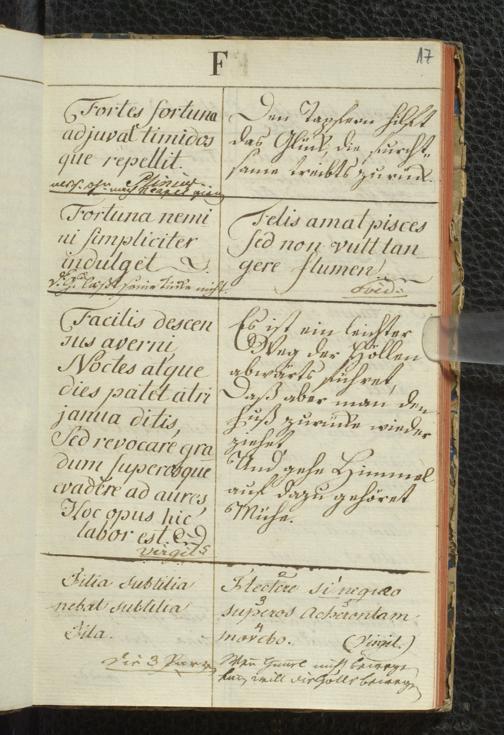 F
17
Fortes fortuna
adjuvat timidos
que repellit.
Plinius
Den Tapfern hilft
das Glück, die furcht-
same treibts zurück.
Fortuna nemi
ni simpliciter
indulget
Felis amat pisces
sed non vult tan
gere flumen
Ovid:
Facilis descen
sus averni,
Noctes atque
dies patet atri
janua ditis,
Sed revocare gra
dum superosque
evadere ad aures
Hoc opus hic
labor est.
Virgil
Es ist ein leichter
Weg der Höllen
abwärts führet
Daß aber man den
Fuß zurücke wieder
ziehet
Und gehe Himmel
auf dazu gehöret
Mühe.
Filia subtilia
nebat subtilia
Fila.
Die 3 Parz
Flectere si nequeo
superos Acherontam
movebo. (Virgil.)
will die Hölle bewege